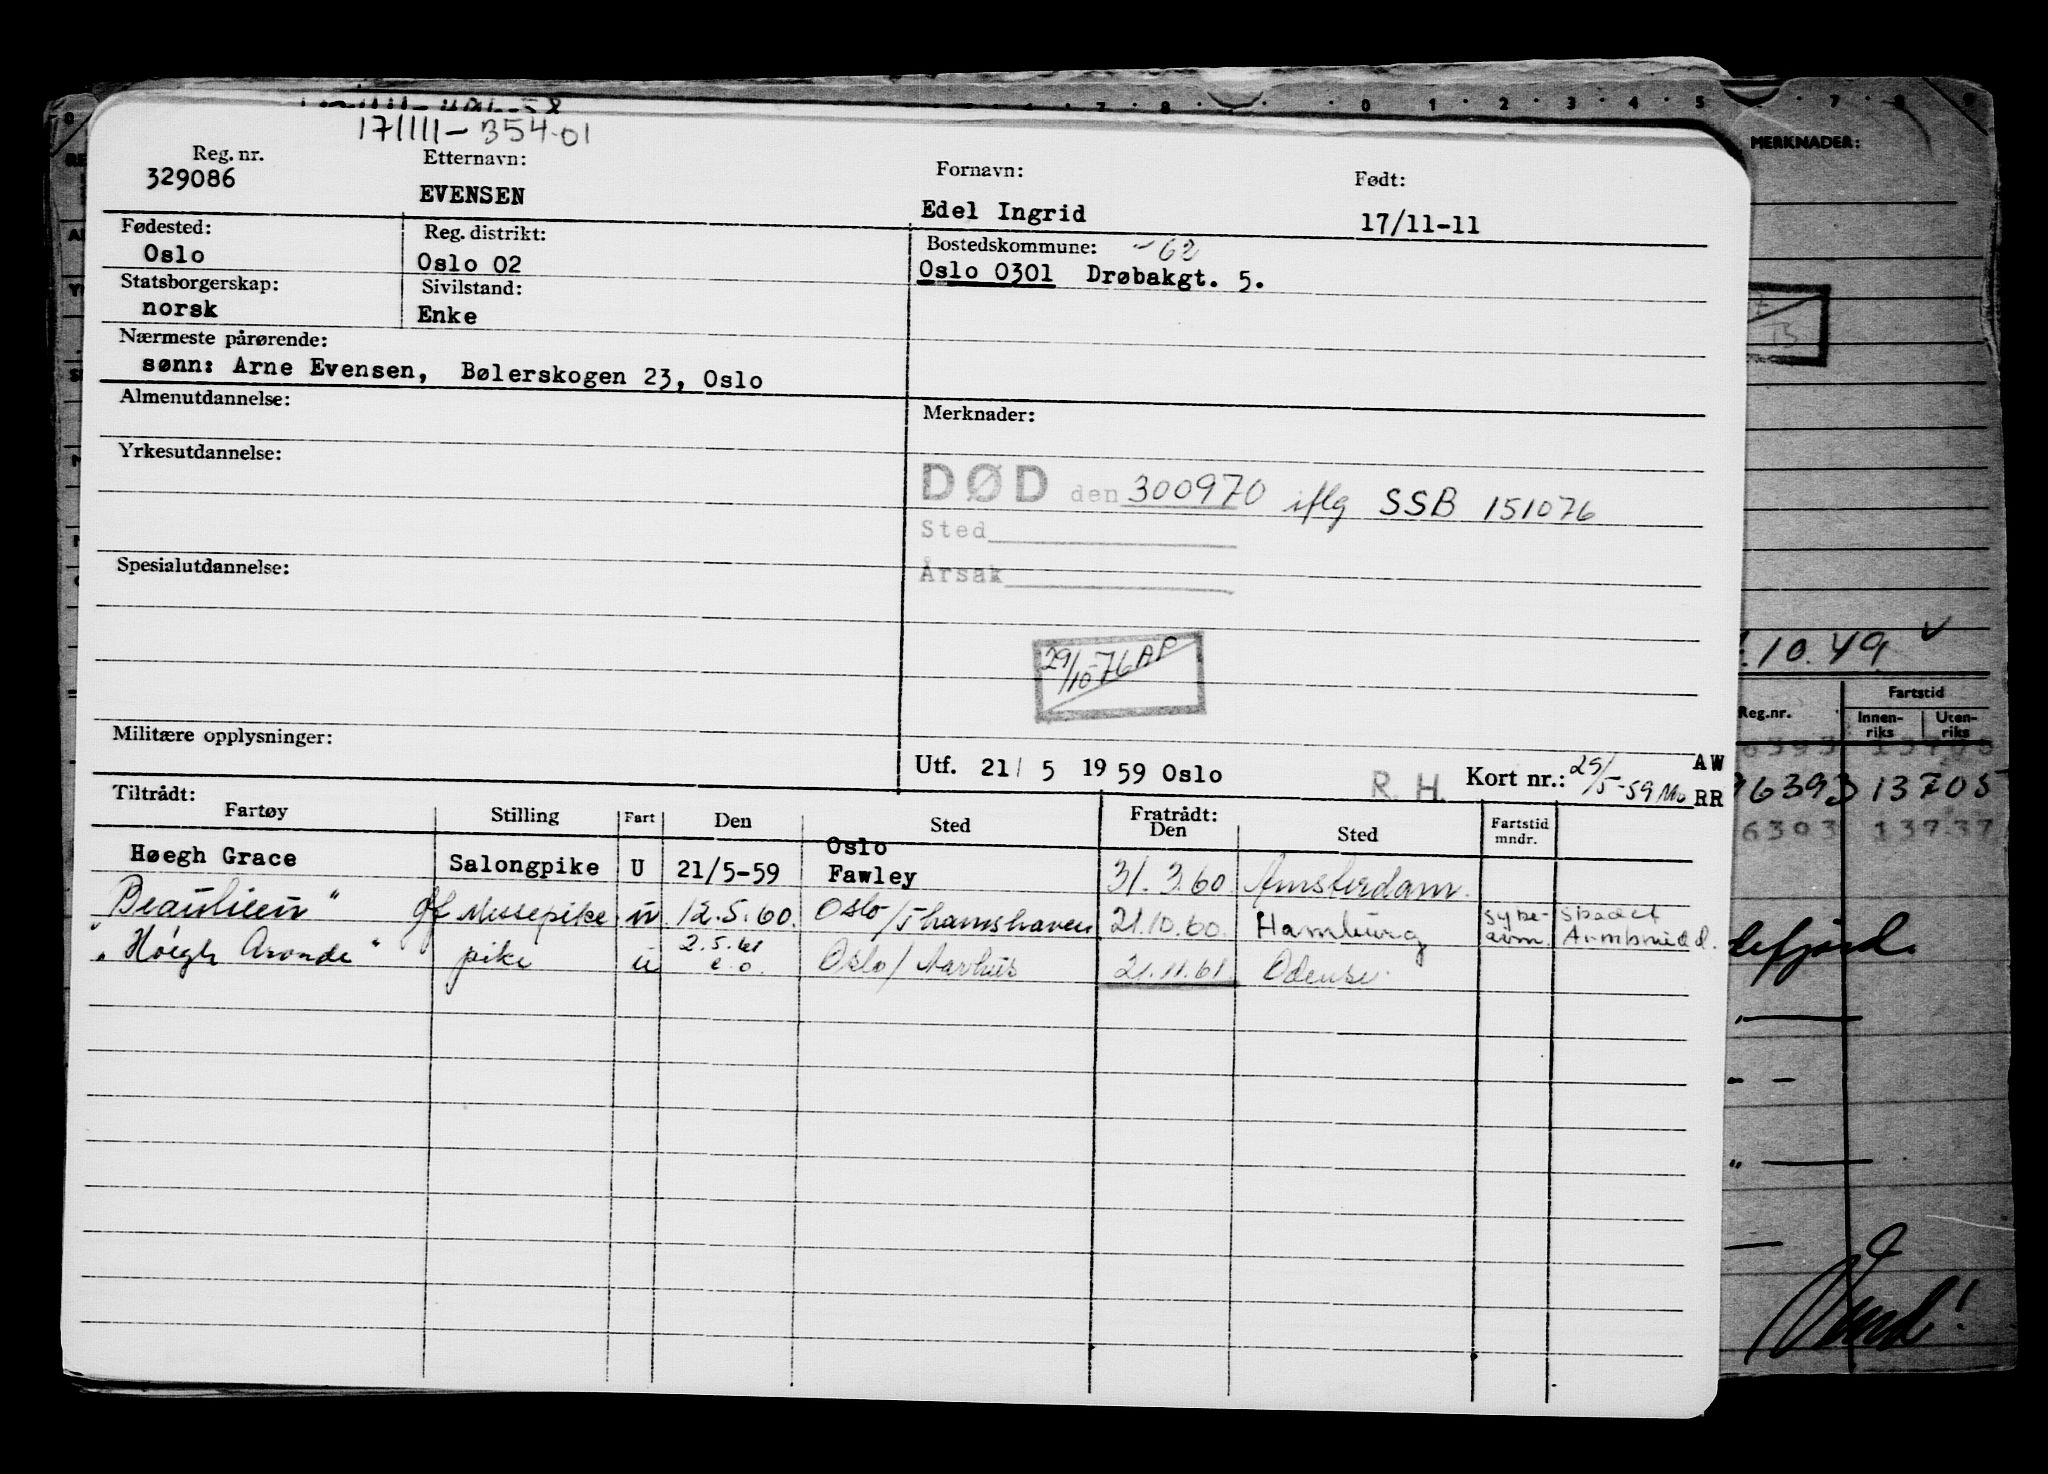 171111-354.01
Reg. nr. Etternavn: Fornavn: Født:
329086 EVENSEN Edel Ingrid 17/11-11
Fødested: Reg. distrikt: Bostedskommune: -62
Oslo Oslo 02 Oslo 0301 Drøbakgt. 5.
Statsborgerskap: Sivilstand:
norsk Enke
Nærmeste pårørende:
sønn: Arne Evensen, Bølerskogen 23, Oslo
Almenutdannelse: Merknader:
Yrkesutdannelse:
DØD den 300970 iflg SSB 151076
Sted
Spesialutdannelse: Årsak
29/10-76 AP
Militære opplysninger:
Utf. 21/ 5 1959 Oslo R. H. Kort nr.: 25/5-59 Mo AW RR
Tiltrådt: Fratrådt:
Fartøy Stilling Fart Den Sted Den Sted Fartstid mndr.
Høegh Grace Salongpike U 21/5-59 Oslo Fawley 31.3.60 Amsterdam.
Beaulieu" Messepike u 12.5.60. Oslo/Thamshaven 21.10.60. Hamburg skadet
"Höegh Aronde" pike u 2.5.61 e.o. Oslo/Aarhus 21.11.61. Odense.
MERKNADER:
.10.49
Reg.nr. Fartstid
Innenriks Utenriks
6393 13705
96393 13705
6393 13737